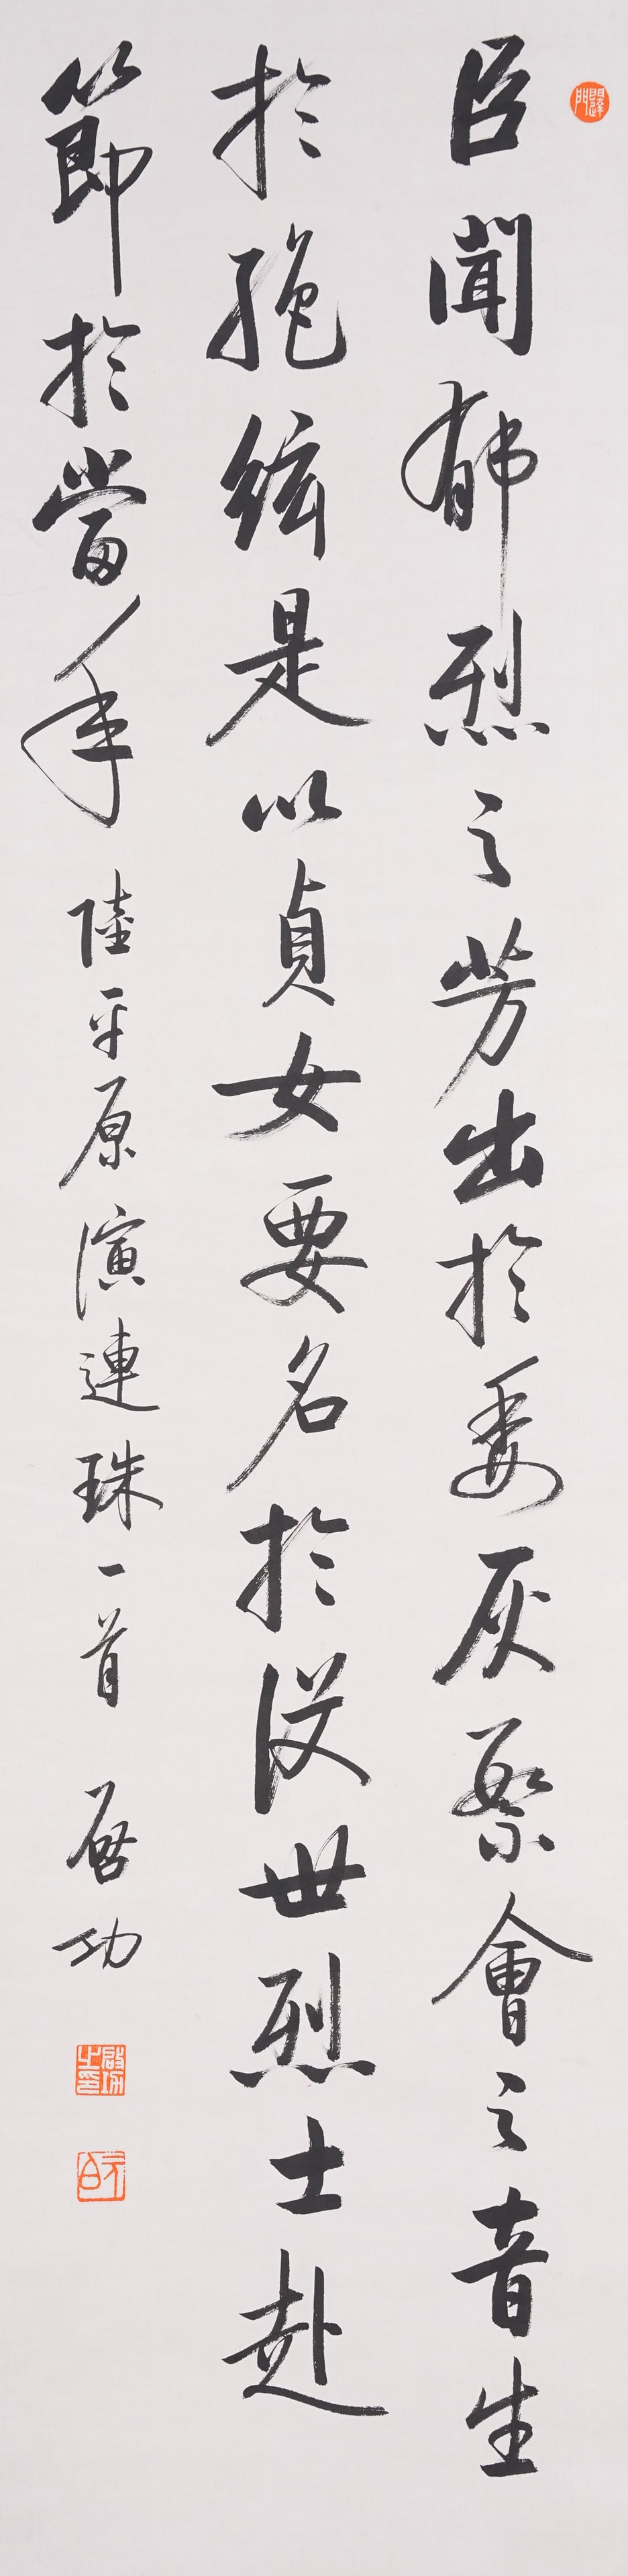 臣聞郁烈之芳出於委灰繁會之音生
於絕絃是以貞女要名於没世烈士赴
節於當年 陸平原演連珠一首 啟功
啟功之印